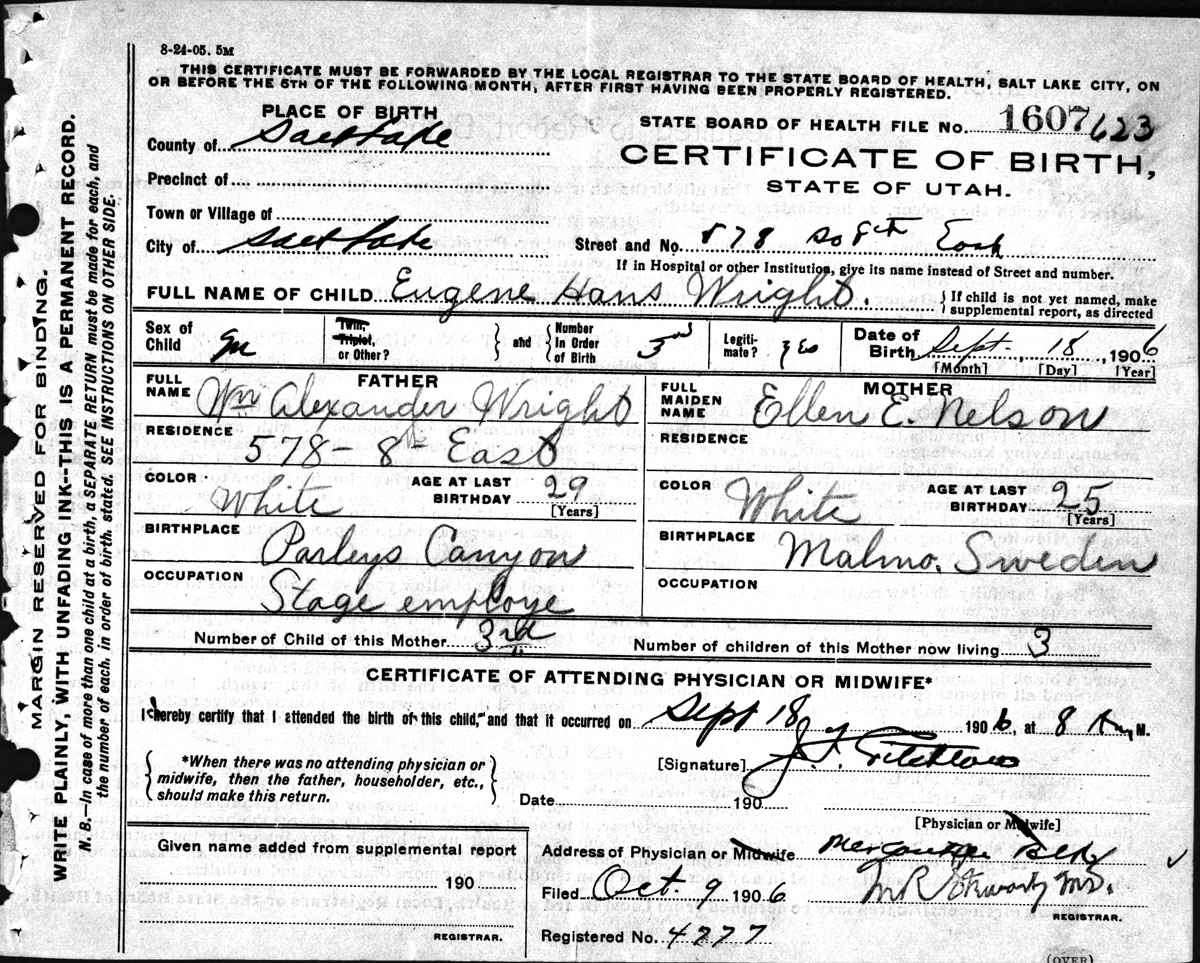 8-24-05. 5M
THIS CERTIFICATE MUST BE FORWARDED BY THE LOCAL REGISTRAR TO THE STATE BOARD OF HEALTH, SALT LAKE CITY, ON
OR BEFORE THE 5TH OF THE FOLLOWING MONTH, AFTER FIRST HAVING BEEN PROPERLY REGISTERED.
MARGIN RESERVED FOR BINDING.
WRITE PLAINLY, WITH UNFADING INK--THIS IS A PERMANENT RECORD.
N. B.--In case of more than one child at a birth, a SEPARATE RETURN must be made for each, and
the number of each, in order of birth, stated. SEE INSTRUCTIONS ON OTHER SIDE.
PLACE OF BIRTH
County of Salt Lake
Precinct of
Town or Village of
City of Salt Lake
STATE BOARD OF HEALTH FILE NO. 1607 623
CERTIFICATE OF BIRTH,
STATE OF UTAH.
Street and No. 578 So 8th East
If in Hospital or other Institution, give its name instead of Street and number.
FULL NAME OF CHILD Eugene Hans Wright. { If child is not yet named, make
supplemental report, as directed
Sex of Child M
Twin, Triplet, or Other? } and { Number In Order of Birth 3rd
Legitimate? Yes
Date of Birth Sept. 18, 1906
[Month] [Day] [Year]
FATHER
FULL NAME Wm Alexander Wright
RESIDENCE 578 - 8th East
COLOR White AGE AT LAST BIRTHDAY 29
[Years]
BIRTHPLACE Parleys Canyon
OCCUPATION Stage employe
MOTHER
FULL MAIDEN NAME Ellen E. Nelson
RESIDENCE
COLOR White AGE AT LAST BIRTHDAY 25
[Years]
BIRTHPLACE Malmo. Sweden
OCCUPATION
Number of Child of this Mother 3rd Number of children of this Mother now living 3
CERTIFICATE OF ATTENDING PHYSICIAN OR MIDWIFE*
I hereby certify that I attended the birth of this child, and that it occurred on Sept 18 1906, at 8 A M.
*When there was no attending physician or
midwife, then the father, householder, etc.,
should make this return.
[Signature] J. F.
Date 190
[Physician or Midwife]
Given name added from supplemental report
190
REGISTRAR.
Address of Physician or Midwife
Filed Oct. 9 1906 M R M.D.
REGISTRAR.
Registered No. 4777
(OVER)